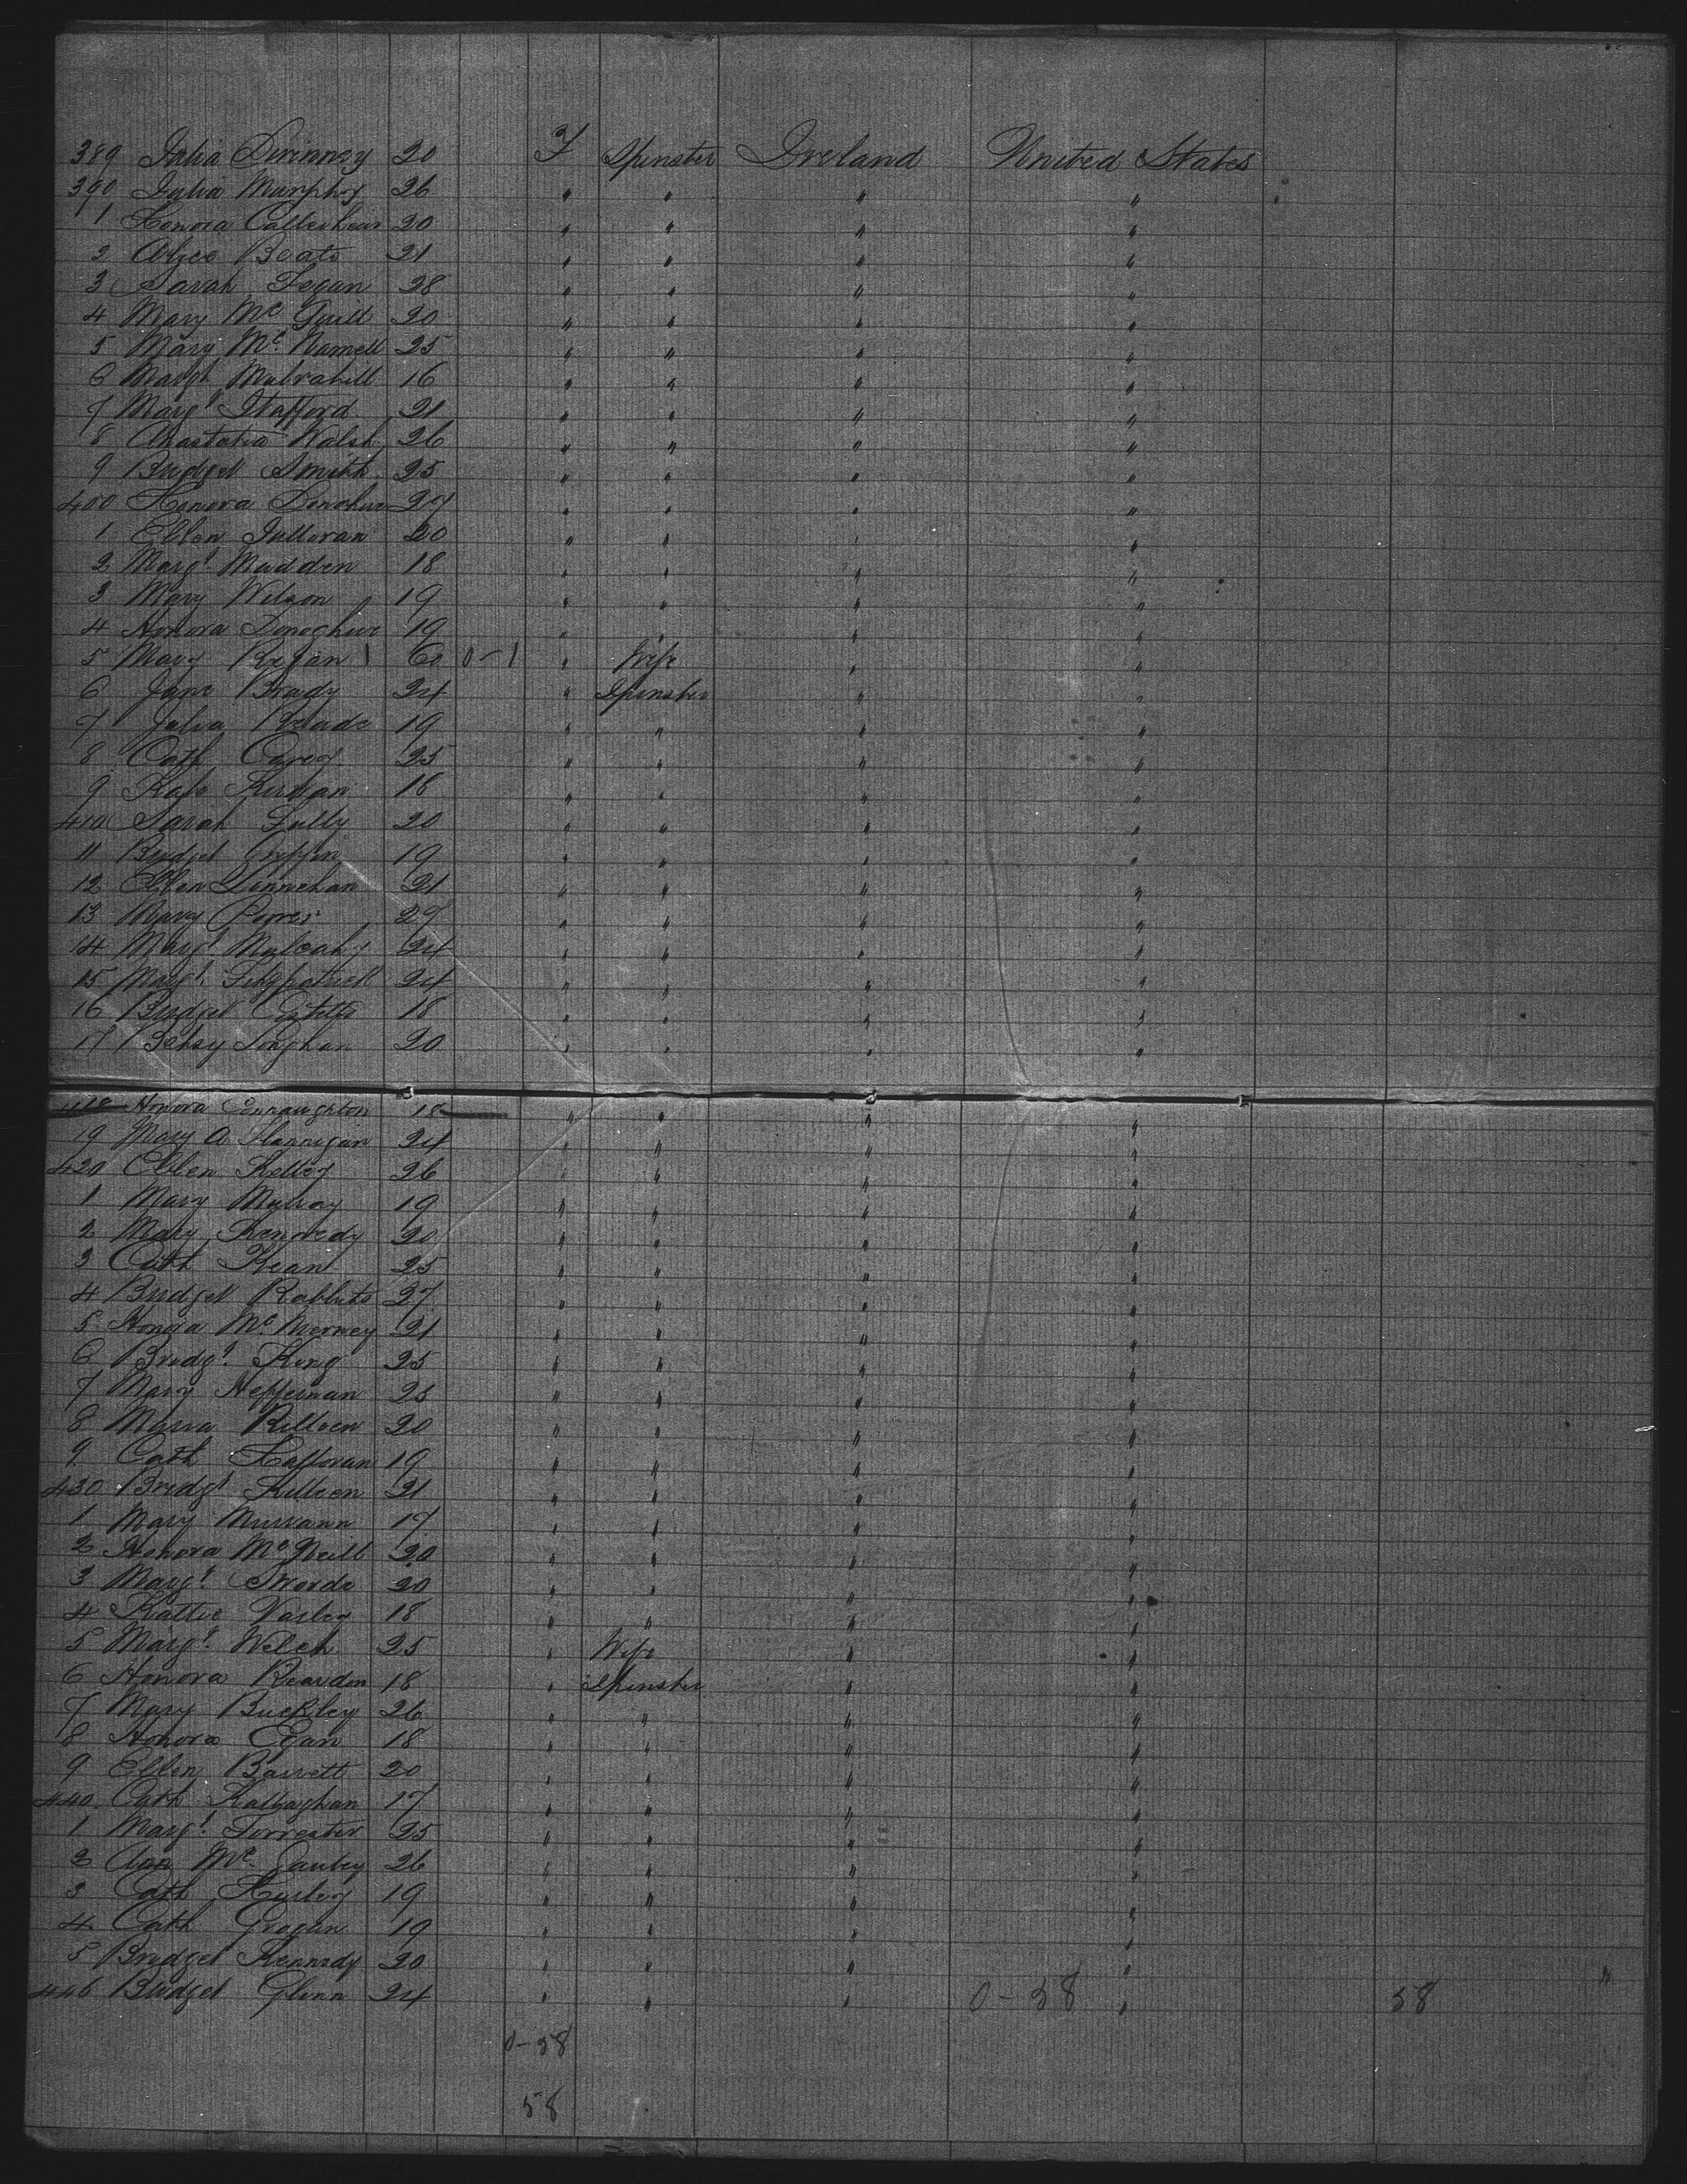 389 Julia Divinney 20 F Spinster Ireland United States
390 Julia Murphy 26 " " " "
1 Honora 20 " " " "
2 Alice Beats 21 " " " "
3 Sarah Fegan 28 " " " "
4 Mary Mc Guill 20 " " " "
5 Mary Mc. 25 " " " "
6 Margt Mulvahill 16 " " " "
7 Margt Stafford 21 " " " "
8 Anastatia Walsh 26 " " " "
9 Bridget Smith 25 " " " "
400 Honora Donohue 27 " " " "
1 Ellen 20 " " " "
2 Margt. Madden 18 " " " "
3 Mary Wilson 19 " " " "
4 Honora Donoghue 19 " " " "
5 Mary 60 0-1 " Wife " "
6 Jane Brady 24 " Spinster " "
7 Julia Reade 19 " " " "
8 Cath Carey 25 " " " "
9 Kate Kirwan 16 " " " "
410 Sarah 20 " " " "
11 Bridget Griffin 19 " " " "
12 Ellen Linnehan 21 " " " "
13 Mary Power 27 " " " "
14 Margt. Mulcahy 24 " " " "
15 Margt. Fitzpatrick 24 " " " "
16 Bridget Costello 18 " " " "
17 Betsy 20 " " " "
418 Honora Connaughton 18 " " " "
19 Mary A Flannigan 24 " " " "
420 Ellen Kelley 26 " " " "
1 Mary Mulroy 19 " " " "
2 Mary Kennedy 20 " " " "
3 Cath Kean 25 " " " "
4 Bridget Rabbits 27 " " " "
5 Honora Mc. Merney 21 " " " "
6 Bridgt. King 25 " " " "
7 Mary Heffernan 25 " " " "
8 Maria Killeen 20 " " " "
9 Cath Halloran 19 " " " "
430 Bridgt Killeen 21 " " " "
1 Mary 17 " " " "
2 Honora Mc Neill 20 " " " "
3 Margt. Swords 20 " " " "
4 Kattie Varley 18 " " " "
5 Margt. Welch 25 " Wife " "
6 Honora Reardon 18 " Spinster " "
7 Mary Buckley 26 " " " "
8 Honora Egan 18 " " " "
9 Ellen Barrett 20 " " " "
440 Cath Kallaghan 17 " " " "
1 Margt. Forrester 25 " " " "
2 Ann Mc. 26 " " " "
3 Cath Hurley 19 " " " "
4 Cath Grogan 19 " " " "
5 Bridget Kennedy 20 " " " "
446 Bridget Glinn 24 " " " 0-58 " 58
0-58
58